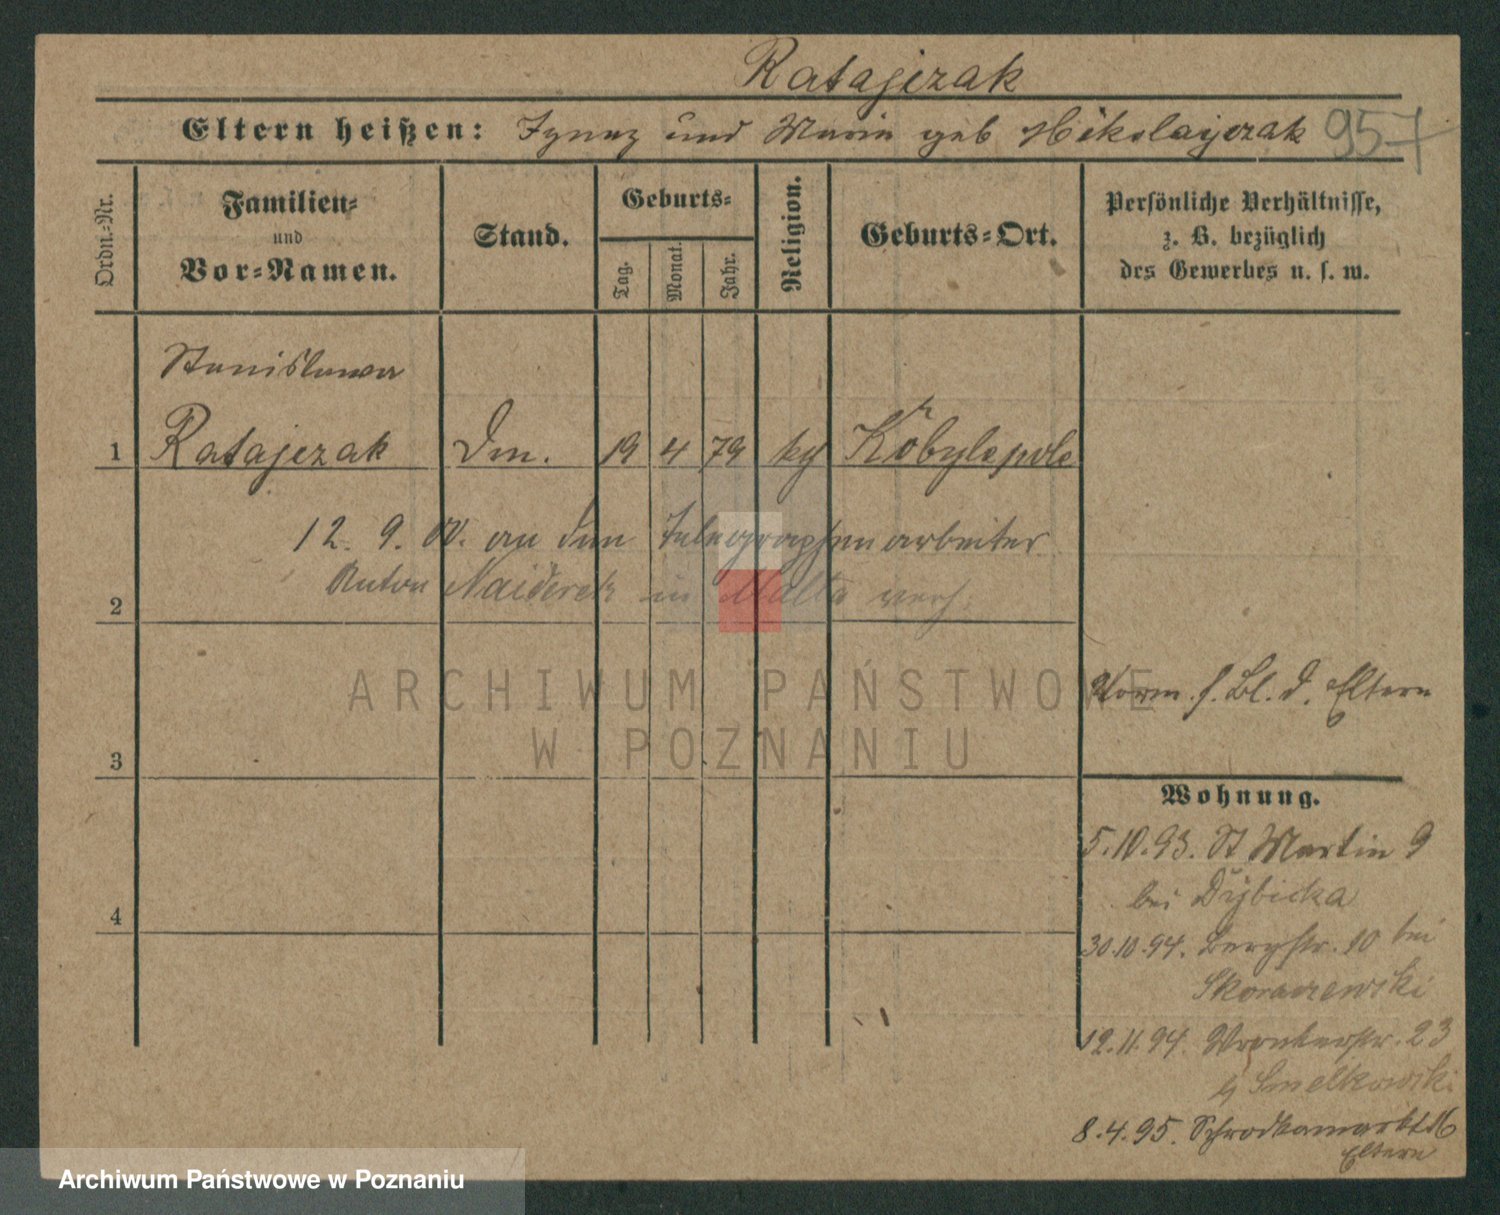 Ratajczak
Eltern heißen: Ignaz und Maria geb Nikolajczak 957
Ordn.-Nr.
Familien-
und
Vor-Namen.
Stand.
Geburts-
Tag.
Monat.
Jahr.
Religion.
Geburts-Ort.
Persönliche Verhältnisse,
z. B. bezüglich
des Gewerbes u. s. w.
Stanislawa
1 Ratajczak Dm. 19 4 79 kg Kobylepole
12. 9. 00. an den Telegraphenarbeiter
Anton Naiderek in Malta verh.
2
ARCHIWUM PAŃSTWOWE
W POZNANIU
Vorm. s. Bl. d. Eltern
3
Wohnung.
5.10.93. St Martin 9
bei Dybicka
4
30.10.94. Bergstr. 10 bei
Skoraczewski
12.11.94. Wronkerstr. 23
Smelkowski
8.4.95. Schrodkamarkt 16
Eltern
Archiwum Państwowe w Poznaniu